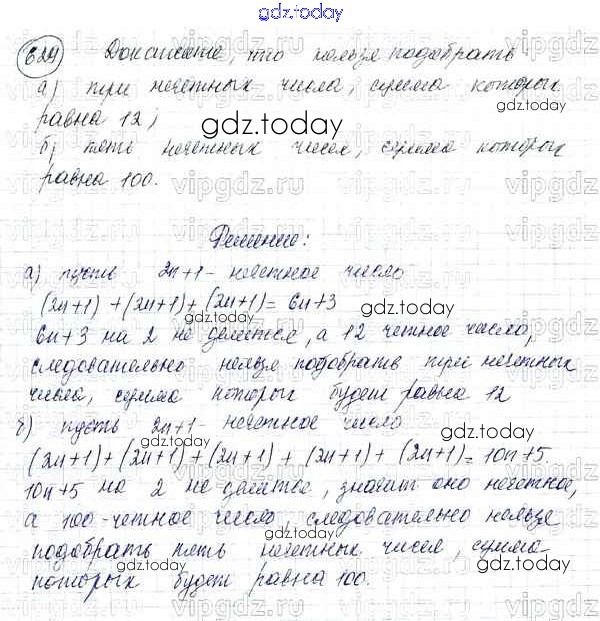 gdz.today
624 Докажите, что нельзя подобрать
а) три нечетных числа, сумма которых
равна 12;
gdz.today
б) пять нечетных чисел, сумма которых
равна 100.
Решение:
а) пусть 2n+1 - нечетное число
(2n+1) + (2n+1) + (2n+1) = 6n+3
gdz.today
6n+3 на 2 не делится, а 12 четное число,
следовательно нельзя подобрать три нечетных
числа, сумма которых будет равна 12
б) пусть 2n+1 - нечетное число
gdz.today
gdz.today
(2n+1) + (2n+1) + (2n+1) + (2n+1) + (2n+1) = 10n+5
10n+5 на 2 не делится, значит оно нечетное,
gdz.today
а 100 - четное число, следовательно нельзя
подобрать пять нечетных чисел, сумма
gdz.today
которых будет равна 100.